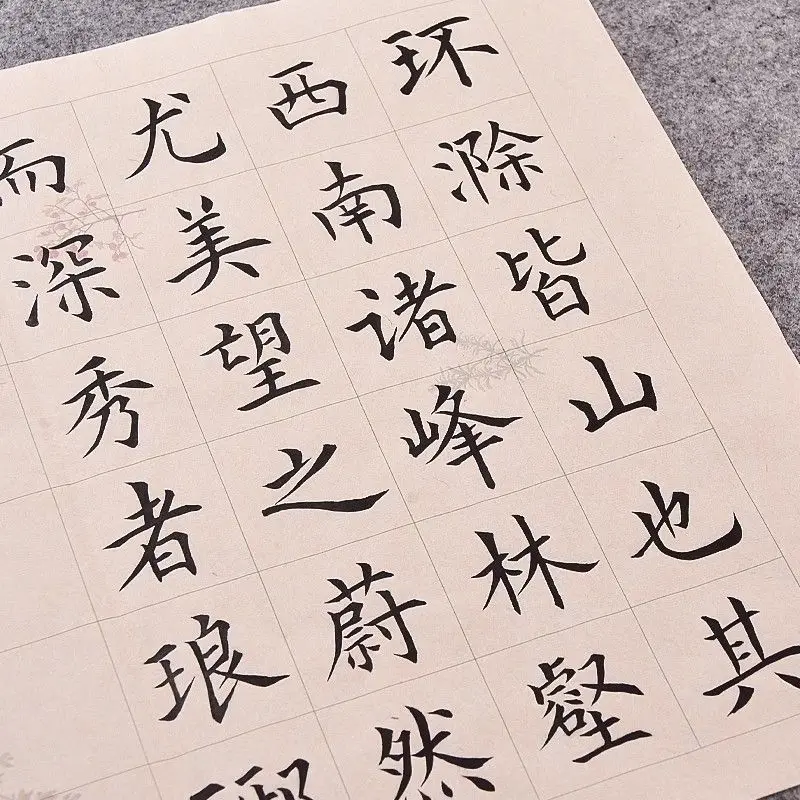 环滁皆山也其
西南诸峰林壑
尤美望之蔚然
而深秀者琅琊